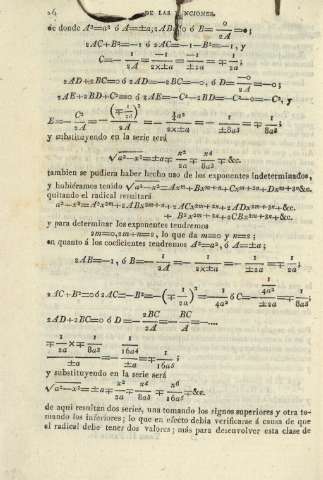 26 DE LAS FUNCIONES.
de donde A²=a² ó A=±a; 2AB=0 ó B=0/2A=0;
2AC+B²=-1 ó 2AC=-1-B²=-1, y
C=-1/2A=-1/2×±a=-1/±2a=∓1/2a;
2AD+2BC=0 ó 2AD=-2BC=-0, ó D=-0/2A=-0;
2AE+2BD+C²=0 ó 2AE=-C²-2BD=-C²-0=-C², y
E=-C²/2A=-(∓1/2a)²/2A=-¼a²/2×±a=-1/±8a³=∓1/8a³;
y substituyendo en la serie será
√a²-x²=±a∓x²/2a∓x⁴/8a³∓&c.
tambien se pudiera haber hecho uso de los exponentes indeterminados,
y hubiéramos tenido √a²-x²=Axᵐ+Bxᵐ⁺ⁿ+Cxᵐ⁺²ⁿ+Dxᵐ⁺³ⁿ&c.
quitando el radical resultará
a²-x²=A²x²ᵐ+2ABx²ᵐ⁺ⁿ+2ACx²ᵐ⁺²ⁿ+2ADx²ᵐ⁺³ⁿ+&c.
+B²x²ᵐ⁺²ⁿ+2CBx²ᵐ⁺³ⁿ+&c.
y para determinar los exponentes tendremos
2m=0, 2m+n=2, lo que da m=0 y n=2;
en quanto á los coeficientes tendremos A²=a², ó A=±a;
2AB=-1, ó B=-1/2A=-1/2×±a=-1/±2a=∓1/2a;
2AC+B²=0 ó 2AC=-B²=-(∓1/2a)²=-1/4a² ó C=-1/4a²/±2a=∓1/8a³;
2AD+2BC=0 ó D=-2BC/2A=-BC/A=-....
∓1/2a×∓1/8a³/±a=-1/16a⁴/±a=∓1/16a⁵
y substituyendo en la serie será
√a²-x²=±a∓x²/2a∓x⁴/8a³∓x⁶/16a⁵∓&c.
de aqui resultan dos series, una tomando los signos superiores y otra to-
mando los inferiores; lo que en efecto debia verificarse á causa de que
el radical debe tener dos valores; más para desenvolver esta clase de